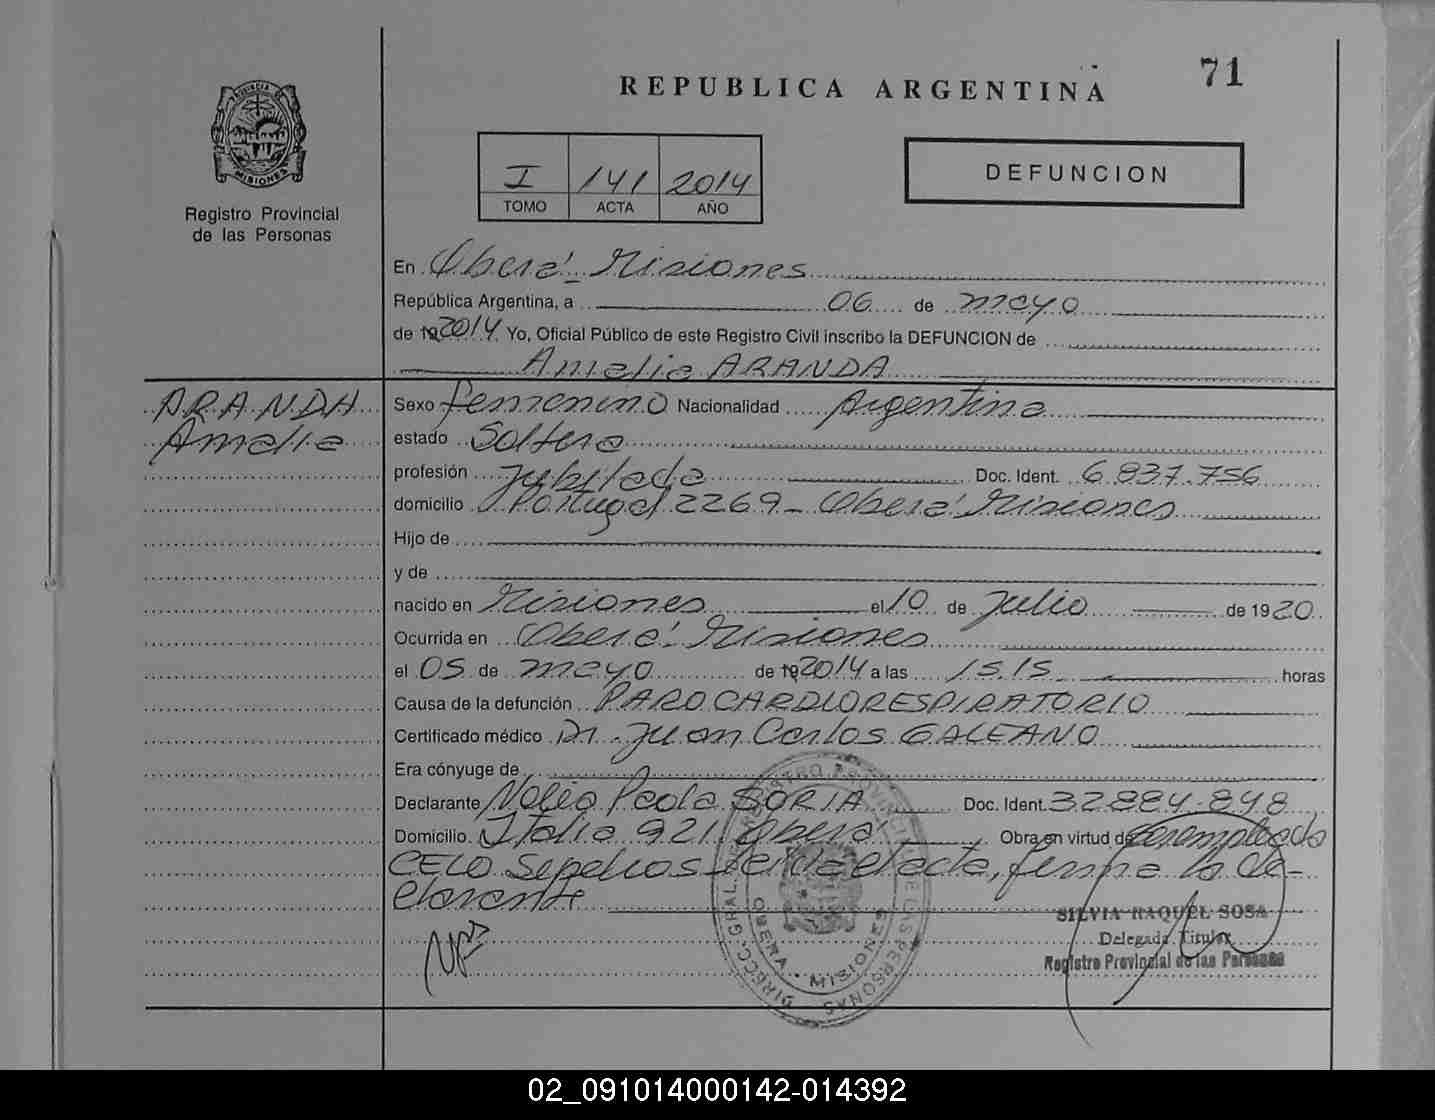 71
REPUBLICA ARGENTINA
PROVINCIA DE
MISIONES
Registro Provincial
de las Personas
I 141 2014
TOMO ACTA AÑO
DEFUNCION
En Oberá - Misiones
República Argentina, a 06 de mayo
de 19 2014 Yo, Oficial Público de este Registro Civil inscribo la DEFUNCION de
Amelia ARANDA
ARANDA
Amelia
Sexo femenino Nacionalidad Argentina
estado Soltera
profesión Jubilada Doc. Ident. 6.837.756
domicilio Portugal 2269 - Oberá Misiones
Hijo de
y de
nacido en Misiones el 10 de Julio de 1920
Ocurrida en Oberá - Misiones
el 05 de mayo de 19 2014 a las 15.15 horas
Causa de la defunción PARO CARDIORESPIRATORIO
Certificado médico Dr. Juan Carlos GALEANO
Era cónyuge de
Declarante Paola SORIA Doc. Ident. 32.884.848
Domicilio Italia 921 Oberá Obra en virtud de ser empleada
CELO Sepelios leída el acta, firma la de-
clarante
DIRECC. GRAL. DE REGISTRO PROVINCIAL DE LAS PERSONAS
OBERA - MISIONES
SILVIA RAQUEL SOSA
Delegada Titular
Registro Provincial de las Personas
02_091014000142-014392